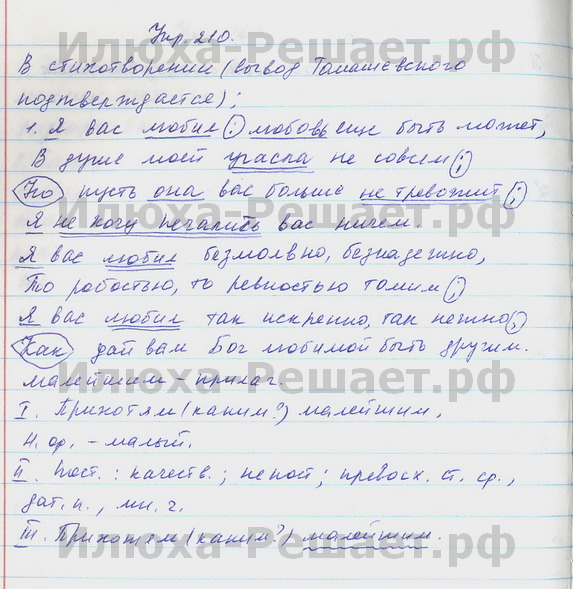 Упр. 210.
Илюха-Решает.рф
В стихотворении (вывод Томашевского
подтверждается);
1. Я вас любил: любовь еще быть может,
В душе моей угасла не совсем;
Но пусть она вас больше не тревожит;
Илюха-Решает.рф
Я не хочу печалить вас ничем.
Я вас любил безмолвно, безнадежно,
То робостью, то ревностью томим;
Я вас любил так искренно, так нежно,
Как дай вам Бог любимой быть другим.
Илюха-Решает.рф
малейшим – прилаг.
I. Прихотям (каким?) малейшим,
н.ф. – малый.
II. Пост.: качеств.; непост; превосх. ст. ср.,
дат. п., мн. ч.
III. Прихотям (каким?) малейшим.
Илюха-Решает.рф